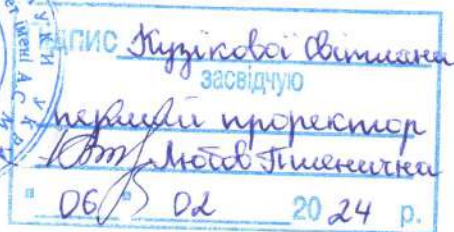 ПІДПИС Кузікової Світлани
засвідчую
перший проректор
Любов Пшенична
"06" 02 2024 р.
УКИ УКР
імені А.С. М